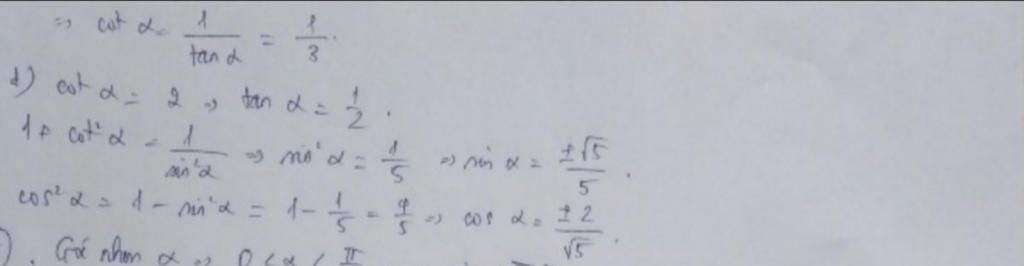 => cot α = 1/tan α = 1/3.
d) cot α = 2 => tan α = 1/2.
1 + cot²α = 1/sin²α => sin²α = 1/5 => sin α = ±√5/5.
cos²α = 1 - sin²α = 1 - 1/5 = 4/5 => cos α = ±2/√5.
). Góc nhọn α => 0 < α < π